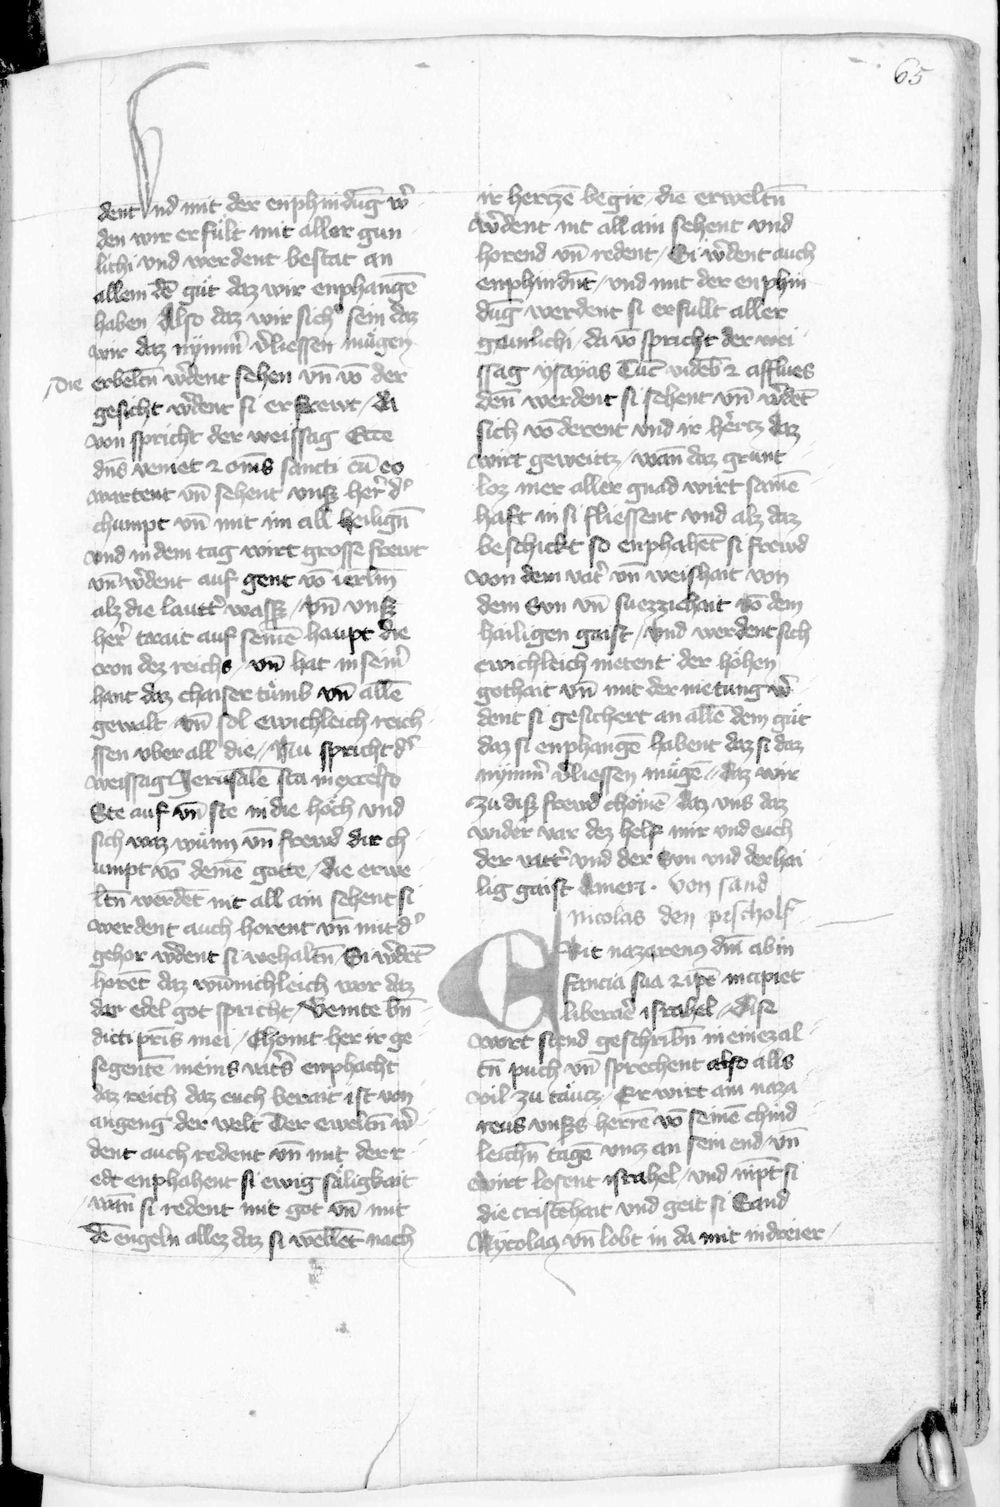 65
dent Vnd mit der enphindūg w̄
den wir erfult mit aller gun
lichi vnd werdent bestat an
allem dē gůt daz wir enphangē
haben Also daz wir sich sein daz
wir daz nymm̄ v̄liessen mugen
die erbeltn̄ w̄dent sehen vn̄ vō der
gesicht w̄dent si erfrewt / da
von spricht der weissag Ecce
dn̄s veniet ⁊ om̄s sancti cū eo
wartent vn̄ sehent vnsz̄ her̄ d̄
chumpt vn̄ mit im all heilign̄
vnd in dem tag wirt grosse frewt
vn̄ w̄dent auf gent vō ierlm̄
alz die lautt̄ wassz̄ / vn̄ vnsz̄
her̄ trait auf seinē haupt die
cron dez reichs / vn̄ hat in sein̄
hant daz chaisertůmb vn̄ allē
gewalt vn̄ sol ewichleich reich
ssen vber all die / Nu spricht d̄
weissag Jerusalē sta in excelso
Ste auf vn̄ ste in die hoͤch vnd
sich waz wunn vn̄ frewd dir ch
umpt vō deinē gotte / die erwe
ltn̄ werdēt nit all ain sehent si
werdent auch horent vn̄ mit d̄
gehor w̄dent si wehaltn̄ / Si w̄dēt
horēt daz wunnichleich wor daz
der edel got spricht / Venite bn̄
dicti pr̄is mei / Chomt her ir ge
segentē meins vat̄s enphacht
daz reich daz euch berait ist von
angeng der welt Der eweltn̄ w̄
dent auch redent vn̄ mit der r
edt enphahent si ewig säligkait
wan̄ si redent mit got vn̄ mit
dē engeln allez daz si wellēt nach
ir hertzē begir / die erweltn̄
w̄dent nit all ain sehent vnd
horend vn̄ redent / Si w̄dent auch
enphindn̄t / vnd mit der enphin
dūg werdent si erfullt aller
gunlichi / da vō spricht der wei
ssag ysayas Tūc videb̄ ⁊ afflues
den̄ werdent si sehent vn̄ w̄dēt
sich vō derent vnd ir hertz daz
wirt geweittz / wan̄ daz grunt
loz mer aller gnad wirt samē
haft in si fliessent vnd alz daz
beschickt so enphahēt si frewd
von dem vat̄ vn̄ weishait von
dem Sun vn̄ suezzichait vō dem
hailigen gaist / vnd werdent sich
ewichleich nietent der höhen
gothait vn̄ mit der nietung w̄
dent si gesichert an allē dem gůt
daz si enphangē habent daz si daz
nymm̄ v̄liessen mügē / daz wir
zu disz̄ frewd chömē daz vns daz
wider var dez helf mir vnd euch
der vatt̄ vnd der Sun vnd der hai
lig gaist Amen · Von sand
nicolas den pischolf
Erit nazareus dm̄ ab in
fancia sua ⁊ ip̄e incipiet
liberare israhel / Dise
wort stend geschribn̄ in einez al
tn̄ puch vn̄ sprechent also alls
vil zu taücz / Er wirt ain naza
reus vnsz̄s herrē vō seinē chind
leichn̄ tagē vncz an sein end vn̄
wirt losent israhel / vnd nip̄t si
die cristēhait vnd geit si Sand
Nycolas vn̄ lobt in da mit in dreier